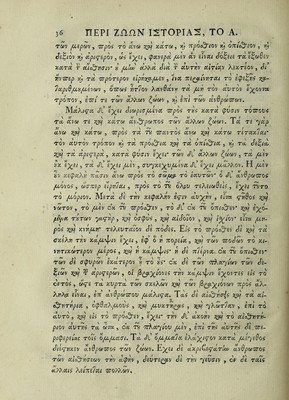 36 ΠΕΡΙ ΖΩΩΝ ΙΣΤΟΡΙΑΣ, ΤΟ Α.
τῶν μερῶν, πρὸς τὸ ἄνω καὶ κάτω, ἢ πρόσθιον ἢ ὀπίσθιον, ἢ
δεξιὸν ἢ ἀριστερὸν, ὡς ἔχει, φανερὰ μὲν ἂν εἶναι δόξειε τὰ ἔξωθεν
κατὰ τὴν αἴσθησιν· οὐ μὴν ἀλλὰ διὰ τὴν αὐτὴν αἰτίαν λεκτέον, δι᾽
ἥνπερ καὶ τὰ πρότερον εἰρήκαμεν, ἵνα περαίνηται τὸ ἐφεξῆς κα-
ταριθμουμένων, ὅπως ἧττον λανθάνῃ τὰ μὴ τὸν αὐτὸν ἔχοντα
τρόπον, ἐπί τε τῶν ἄλλων ζώων, καὶ ἐπὶ τῶν ἀνθρώπων.
Μάλιστα δ᾽ ἔχει διωρισμένα πρὸς τοὺς κατὰ φύσιν τόπους
τὰ ἄνω καὶ τὰ κάτω ἄνθρωπος τῶν ἄλλων ζώων. Τά τε γὰρ
ἄνω καὶ κάτω, πρὸς τὰ τοῦ παντὸς ἄνω καὶ κάτω τέτακται·
τὸν αὐτὸν τρόπον καὶ τὰ πρόσθια καὶ τὰ ὀπίσθια, καὶ τὰ δεξιὰ
καὶ τὰ ἀριστερὰ, κατὰ φύσιν ἔχει· τῶν δ᾽ ἄλλων ζώων, τὰ μὲν
οὐκ ἔχει, τὰ δ᾽ ἔχει μὲν, συγκεχυμένα δ᾽ ἔχει μᾶλλον. Ἡ μὲν
οὖν κεφαλὴ πᾶσιν ἄνω πρὸς τὸ σῶμα τὸ ἑαυτῶν· ὁ δ᾽ ἄνθρωπος
μόνος, ὥσπερ εἴρηται, πρὸς τὸ τοῦ ὅλου τελειωθεὶς, ἔχει τοῦτο
τὸ μόριον. Μετὰ δὲ τὴν κεφαλήν ἐστιν αὐχὴν, εἶτα στῆθος καὶ
νῶτον, τὸ μὲν ἐκ τοῦ πρόσθεν, τὸ δ᾽ ἐκ τοῦ ὄπισθεν· καὶ ἐχό-
μενα τούτων γαστὴρ, καὶ ὀσφὺς, καὶ αἰδοῖον, καὶ ἰσχίον· εἶτα μη-
ρὸς καὶ κνήμη· τελευταῖοι δὲ πόδες. Εἰς τὸ πρόσθεν δὲ καὶ τὰ
σκέλη τὴν κάμψιν ἔχει, ἐφ᾽ ὃ καὶ ἡ πορεία, καὶ τῶν ποδῶν τὸ κι-
νητικώτερον μέρος, καὶ ἡ κάμψις· ἡ δὲ πτέρνα ἐκ τοῦ ὄπισθεν·
τῶν δὲ σφυρῶν ἑκάτερον ἢ τὸ οὖς· ἐκ δὲ τῶν πλαγίων τῶν δε-
ξιῶν καὶ τῶν ἀριστερῶν, οἱ βραχίονες τὴν κάμψιν ἔχοντες εἰς τὸ
ἐντὸς, ὥστε τὰ κυρτὰ τῶν σκελῶν καὶ τῶν βραχιόνων πρὸς ἄλ-
ληλα εἶναι, ἐπ᾽ ἀνθρώπου μάλιστα. Τὰς δὲ αἰσθήσεις καὶ τὰ αἰ-
σθητήρια, ὀφθαλμοὺς, καὶ μυκτῆρας, καὶ γλῶτταν, ἐπὶ τὸ
αὐτὸ, καὶ εἰς τὸ πρόσθεν, ἔχει· τὴν δ᾽ ἀκοὴν καὶ τὸ αἰσθητή-
ριον αὐτῆς τὰ ὦτα, ἐκ τοῦ πλαγίου μὲν, ἐπὶ τῆς αὐτῆς δὲ πε-
ριφερείας τοῖς ὄμμασι. Τὰ δ᾽ ὄμματα ἐλάχιστον κατὰ μέγεθος
διέστηκεν ἀνθρώπῳ τῶν ζώων. Ἔχει δὲ ἀκριβεστάτην ἄνθρωπος
τῶν αἰσθήσεων τὴν ἁφὴν, δευτέραν δὲ τὴν γεῦσιν, ἐν δὲ ταῖς
ἄλλαις λείπεται πολλῶν.